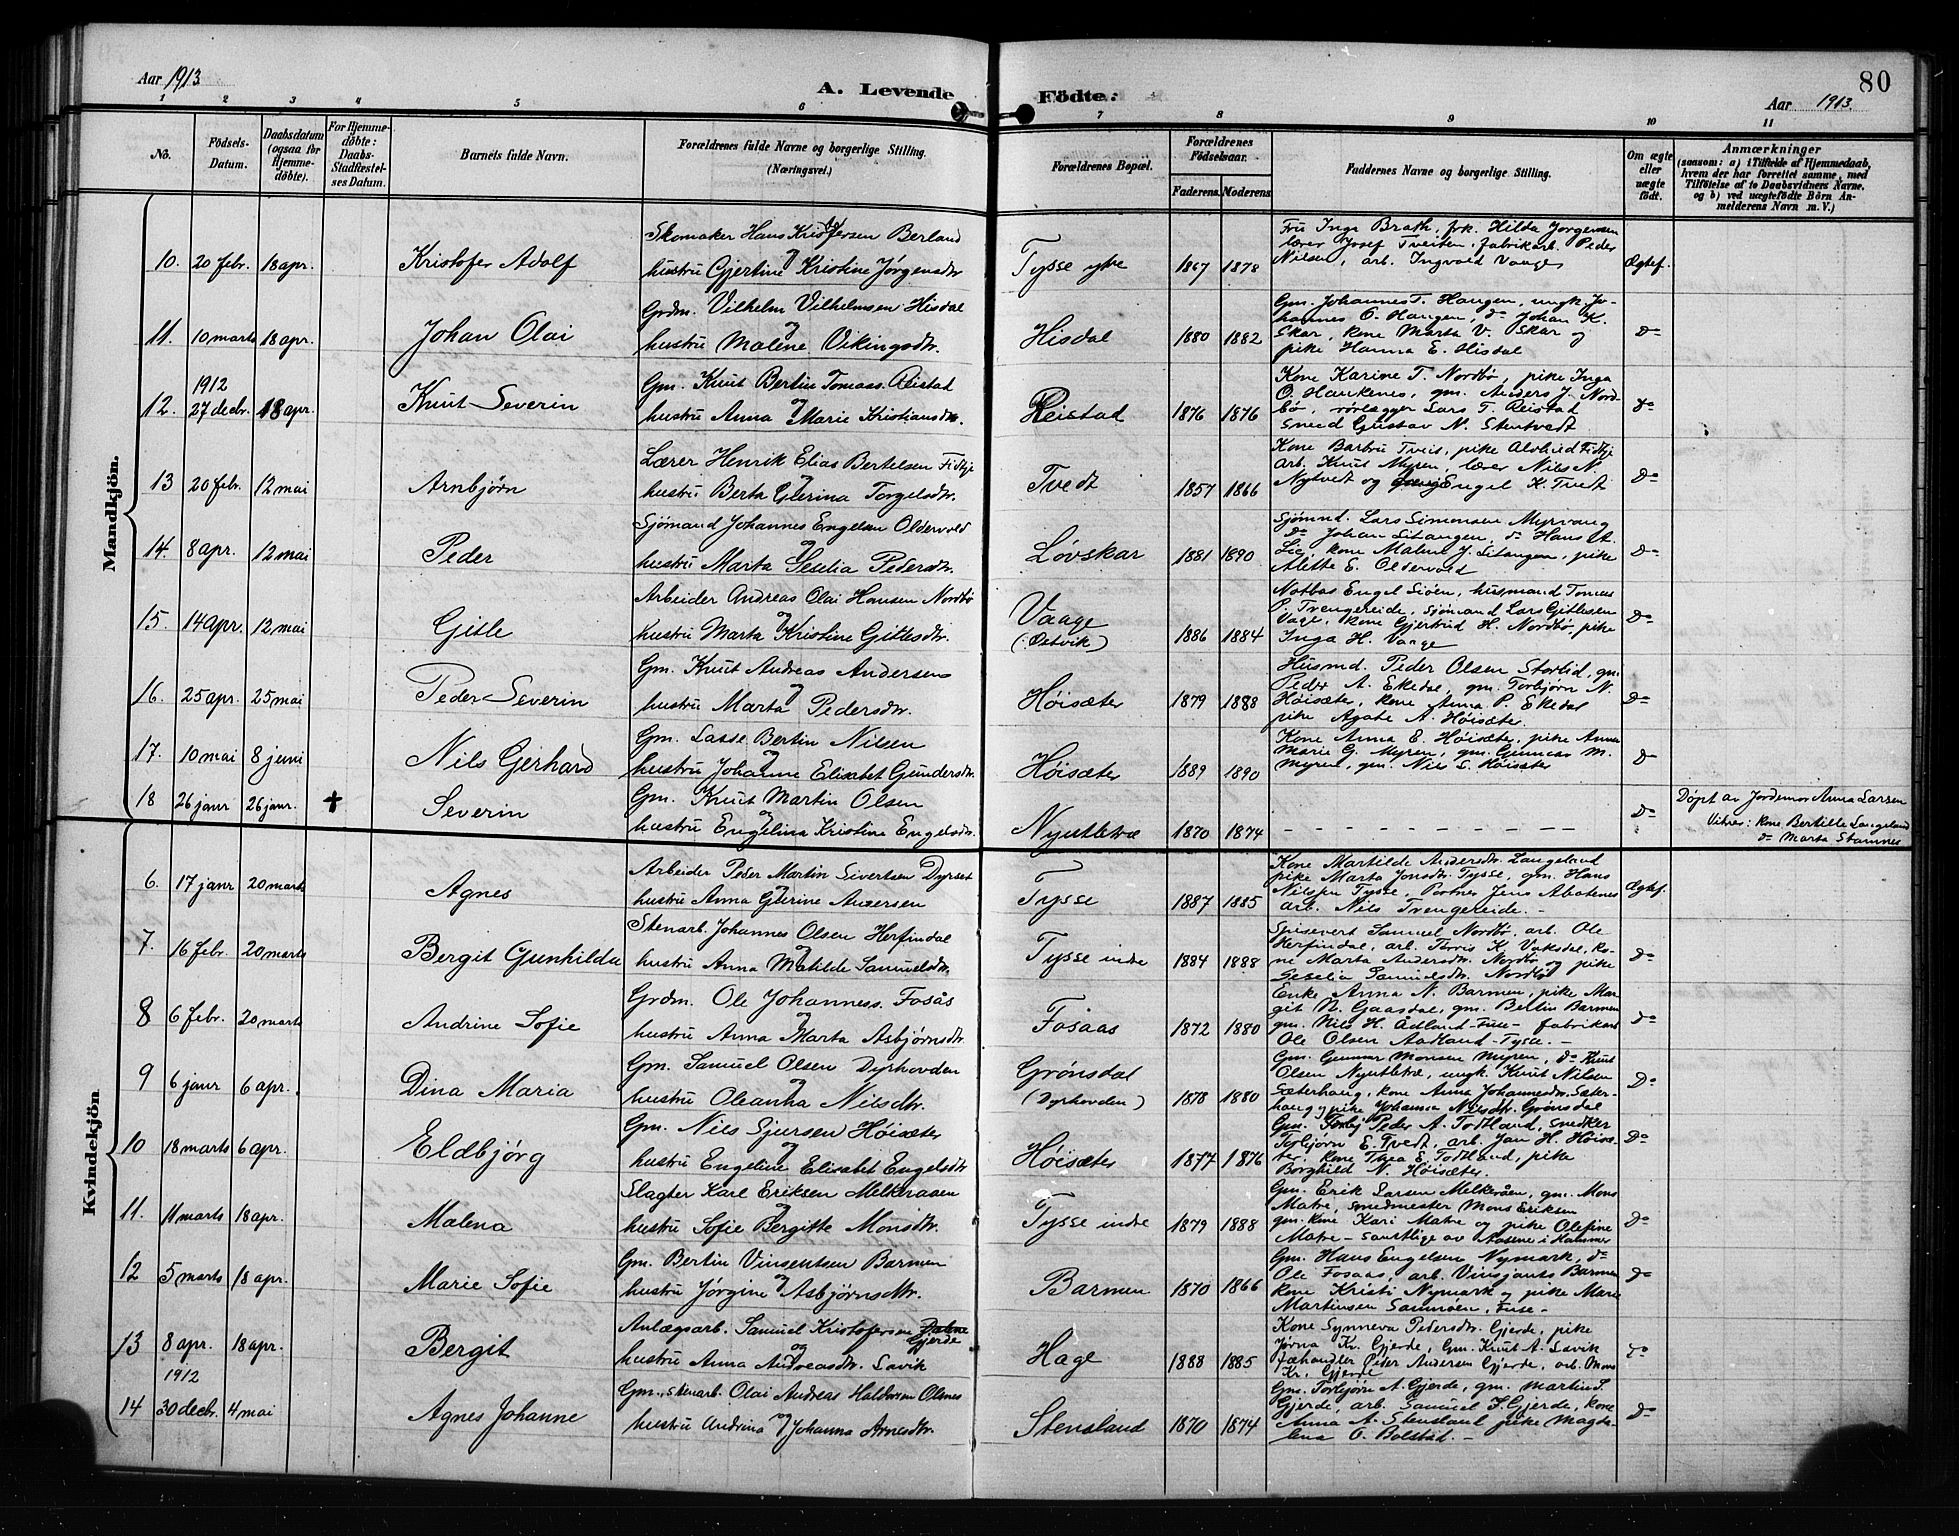 80
Aar 1913
A. Levende Födte:
Aar 1913.
1 2 3 4 5 6 7 8 9 10 11
No.
Födsels-Datum.
Daabsdatum (ogsaa for Hjemmedöbte).
For Hjemmedöbte: Daabs-Stadfæstelses Datum.
Barnets fulde Navn.
Forældrenes fulde Navne og borgerlige Stilling. (Næringsvei.)
Forældrenes Bopæl.
Forældrenes Födselsaar.
Faderens. Moderens.
Faddernes Navne og borgerlige Stilling.
Om ægte eller uægte födt.
Anmærkninger
(saasom: a) i Tilfælde af Hjemmedaab, hvem der har forrettet samme, med Tilföielse af to Daabsvidners Navne, og b) ved uægtefödte Börn Anmelderens Navn m. V.)
Mandkjön.
10. 20 febr. 18 apr. Kristofer Adolf
Skomaker Hans Kristofersen Berland
og
hustru Gjertine Kristine Jørgensdtr
Tysse ytre 1867 1878
Fru Inga Brath, frk. Hilda Jørgensen
lærer Josef Tveiten, fabrikarb. Peder
Nilsen, arb. Ingvald Vaage
Ægtef.
11. 10 marts 18 apr. Johan Olai
Grdm. Vilhelm Vilhelmsen Hisdal
og
hustru Malene Vikingsdtr.
Hisdal 1880 1882
Gm. Johannes T. Haugen, ungk. Jo-
hannes O. Haugen, do Johan K.
Skar, kone Marta V. Skar og
pike Hanna E. Hisdal
do
1912
12. 27 decbr. 18 apr. Knut Severin
Gm. Knut Bertin Tomass. Reistad
og
hustru Anna Marie Kristiansdtr.
Reistad 1876 1876
Kone Karine T. Nordbø, pike Inga
O. Haukenes, gm. Anders J. Nord-
bø, rørlægger Lars T. Reistad
smed Gustav N. Stentvedt
do
13 20 febr. 12 mai Arnbjørn
Lærer Henrik Elias Bertelsen Fidtje
og
hustru Berta Glerina Torgelsdtr.
Tvedt 1857 1866
Kone Barbru Tveit, pike Alvhild Fidtje
arb. Knut Myren, lærer Nils N.
Nytvedt og Engel K. Tvedt
do
14. 8 apr. 12 mai Peder
Sjømand Johannes Engelsen Oldervold
og
hustru Marta Seselia Pedersdtr.
Løvskar 1881 1890
Sjømnd. Lars Simonsen Myrvang
do Johan Litangen, do Hans A.
Lie, kone Malene J. Litangen, pike
Alette E. Oldervold
do
15. 14 apr. 12 mai Gitle
Arbeider Andreas Olai Hansen Nordbø
og
hustru Marta Kristine Gitlesdtr.
Vaage
(Østvik) 1886 1884
Notbas Engel Sioen, husmand Tomas
P. Trengereide, sjømand Lars Gitlesen
Vage, kone Gjertrud H. Nordbø, pike
Inga H. Vaage
do
16. 25 apr. 25 mai Peder Severin
Gm. Knut Andreas Andersen
og
hustru Marta Pedersdtr.
Høisæter 1879 1888
Husmd. Peder Olsen Storlid, gm.
Peder A. Ekedal, gm. Torbjørn N.
Høisæter, kone Anna P. Ekedal
pike Agate A. Høisæter.
do
17. 10 mai 8 juni Nils Gerhard
Gm. Lasse Bertin Nilsen
og
hustru Johanne Elisabet Gundersdtr.
Høisæter 1889 1890
Kone Anna E. Høisæter, pike Anna
Marie G. Myren, gm. Gunnar M.
Myren, gm. Nils L. Høisæter
do
18 26 janr 26 janr. † Severin
Gm. Knut Martin Olsen
og
hustru Engelina Kristine Engelsdtr.
Nyutletræ 1870 1874
- - - - - - - - - -
do
Døpt av Jordemor Anna Larsen
Vitner: kone Bertille Langeland
do Marta Stamnes
Kvindekjön
6. 17 janr 20 marts Agnes
Arbeider Peder Martin Sivertsen Dyrset
og
hustru Anna Glerine Andersen
Tysse 1887 1885
Kone Martilde Andersdtr. Langeland
pike Marta Jonsdtr. Tysse, gm. Hans
Nilssen Tysse, Portner Jens Abotenes
arb. Nils Trengereide. -
Ægtef.
7. 16 febr. 20 marts Bergit Gunhilda
Stenarb. Johannes Olsen Herfindal
og
hustru Anna Matilde Samuelsdtr.
Tysse indre 1884 1888
Spisevert Samuel Nordbø, arb. Ole
Herfindal, arb. Torris K. Vaksdal, ko-
ne Marta Andersdtr. Nordbø og pike
Seselia Samuelsdtr. Nordbø
do
8 6 febr. 20 marts Andrine Sofie
Grdm. Ole Johanness. Fosås
og
hustru Anna Marta Asbjørnsdtr.
Fosaas 1872 1880
Enke Anna N. Barmen, pike Mar-
git N. Gaasdal, gm. Bertin Barmen
gm. Nils H. Ådland -Fuse- fabrikarb
Ole Olsen Aadland - Tysse. -
do
9 6 janr 6 apr. Dina Maria
Gm. Samuel Olsen Dyrhovden
og
hustru Oleanna Nilsdtr.
Grønsdal
(Dyrhovden) 1878 1880
Gm. Gunnar Monsen Myren, do Knut
Olsen Nyutletræ, ungk. Knut Nilsen
Sæterhaug, kone Anna Johannesdtr. Sæter-
haug og pike Johanna Nilsdtr. Grønsdal
do
10 18 marts 6 apr. Eldbjørg
Gm. Nils Sjursen Høisæter
og
hustru Engeline Elisabet Engelsdtr
Høisæter 1877 1876
Gm. Peder A. Todtland, snedker
Torbjørn E. Tvedt, arb. Jan H. Høisæ-
ter, kone Thea E. Todtland, pike
Borghild N. Høisæter.
do
11. 11 marts 18 apr. Malena
Slagter Karl Eriksen Melkeraaen
og
hustru Sofie Bergitte Monsdtr.
Tysse indre 1879 1888
Gm. Erik Larsen Melkeråen, gm. Mons
Matre, smedmester Mons Eriksen
gm. kone Kari Matre og pike Olefine
Matre - samtlige av Aasene i Hammer
do
12 5 marts 18 apr. Marie Sofie
Gm. Bertin Vinsentsen Barmen
og
hustru Jørgine Asbjørnsdtr.
Barmen 1870 1866
Gm. Hans Engelsen Nymark, do
Ole Fosaas, arb. Vinsjants Barmen
kone Kristi Nymark og pike Marie
Martinsen Samnøen, Fuse-
do
13 8 apr. 18 apr. Bergit
Anlægsarb. Samuel Kristofersen Dalene
Gjerde
og
hustru Anna Andreasdtr. Lavik
Hage 1888 1885
Kone Synneva Pedersdtr. Gjerde, pike
Jørna Kr. Gjerde, Gm. Knut A. Lavik
fæhandler Peter Andersen Gjerde, arb. Mons
Kr. Gjerde
do
1912
14 30 decbr. 4 mai Agnes Johanne
Gm., stenarb. Olai Andreas Haldorsen Olsnes
og
hustru Andrina Johanna Arnesdtr.
Stensland 1870 1874
Gm. Torbjørn A. Gjerde, gm. Martin S.
Gjerde, arb. Samuel H. Gjerde, kone
Anna A. Stensland, pike Magta-
lena O. Bolstad. -
do